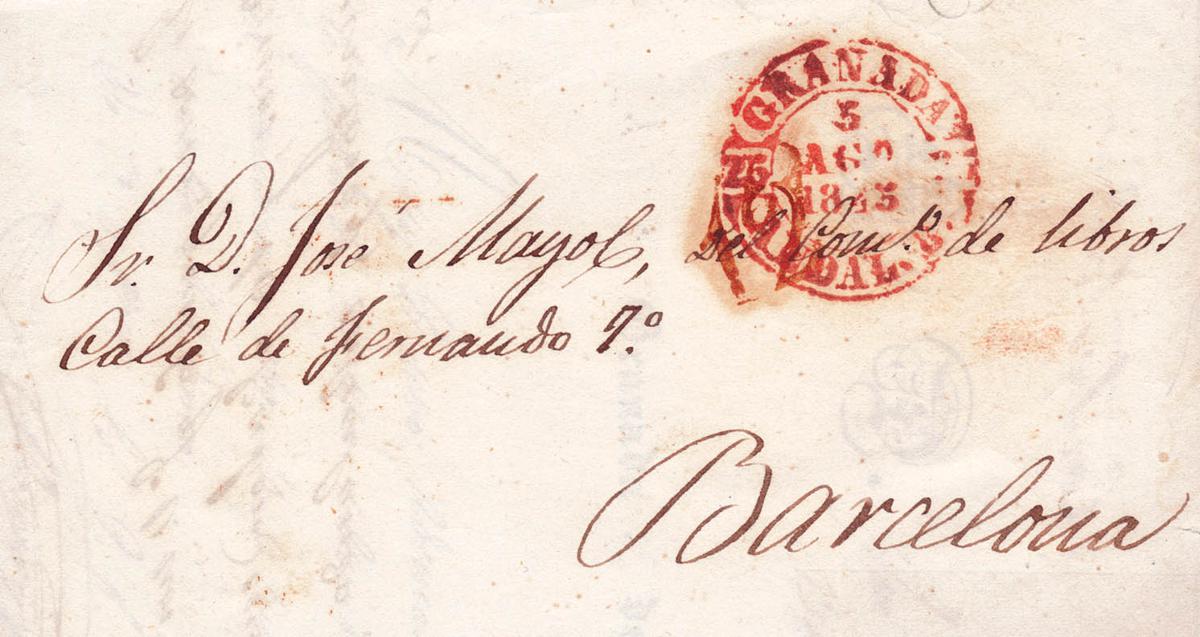 GRANADA
5
AGO
1845
DAL. B.
Sr. D. José Mayol, del Com.º de libros
Calle de Fernando 7.º
Barcelona